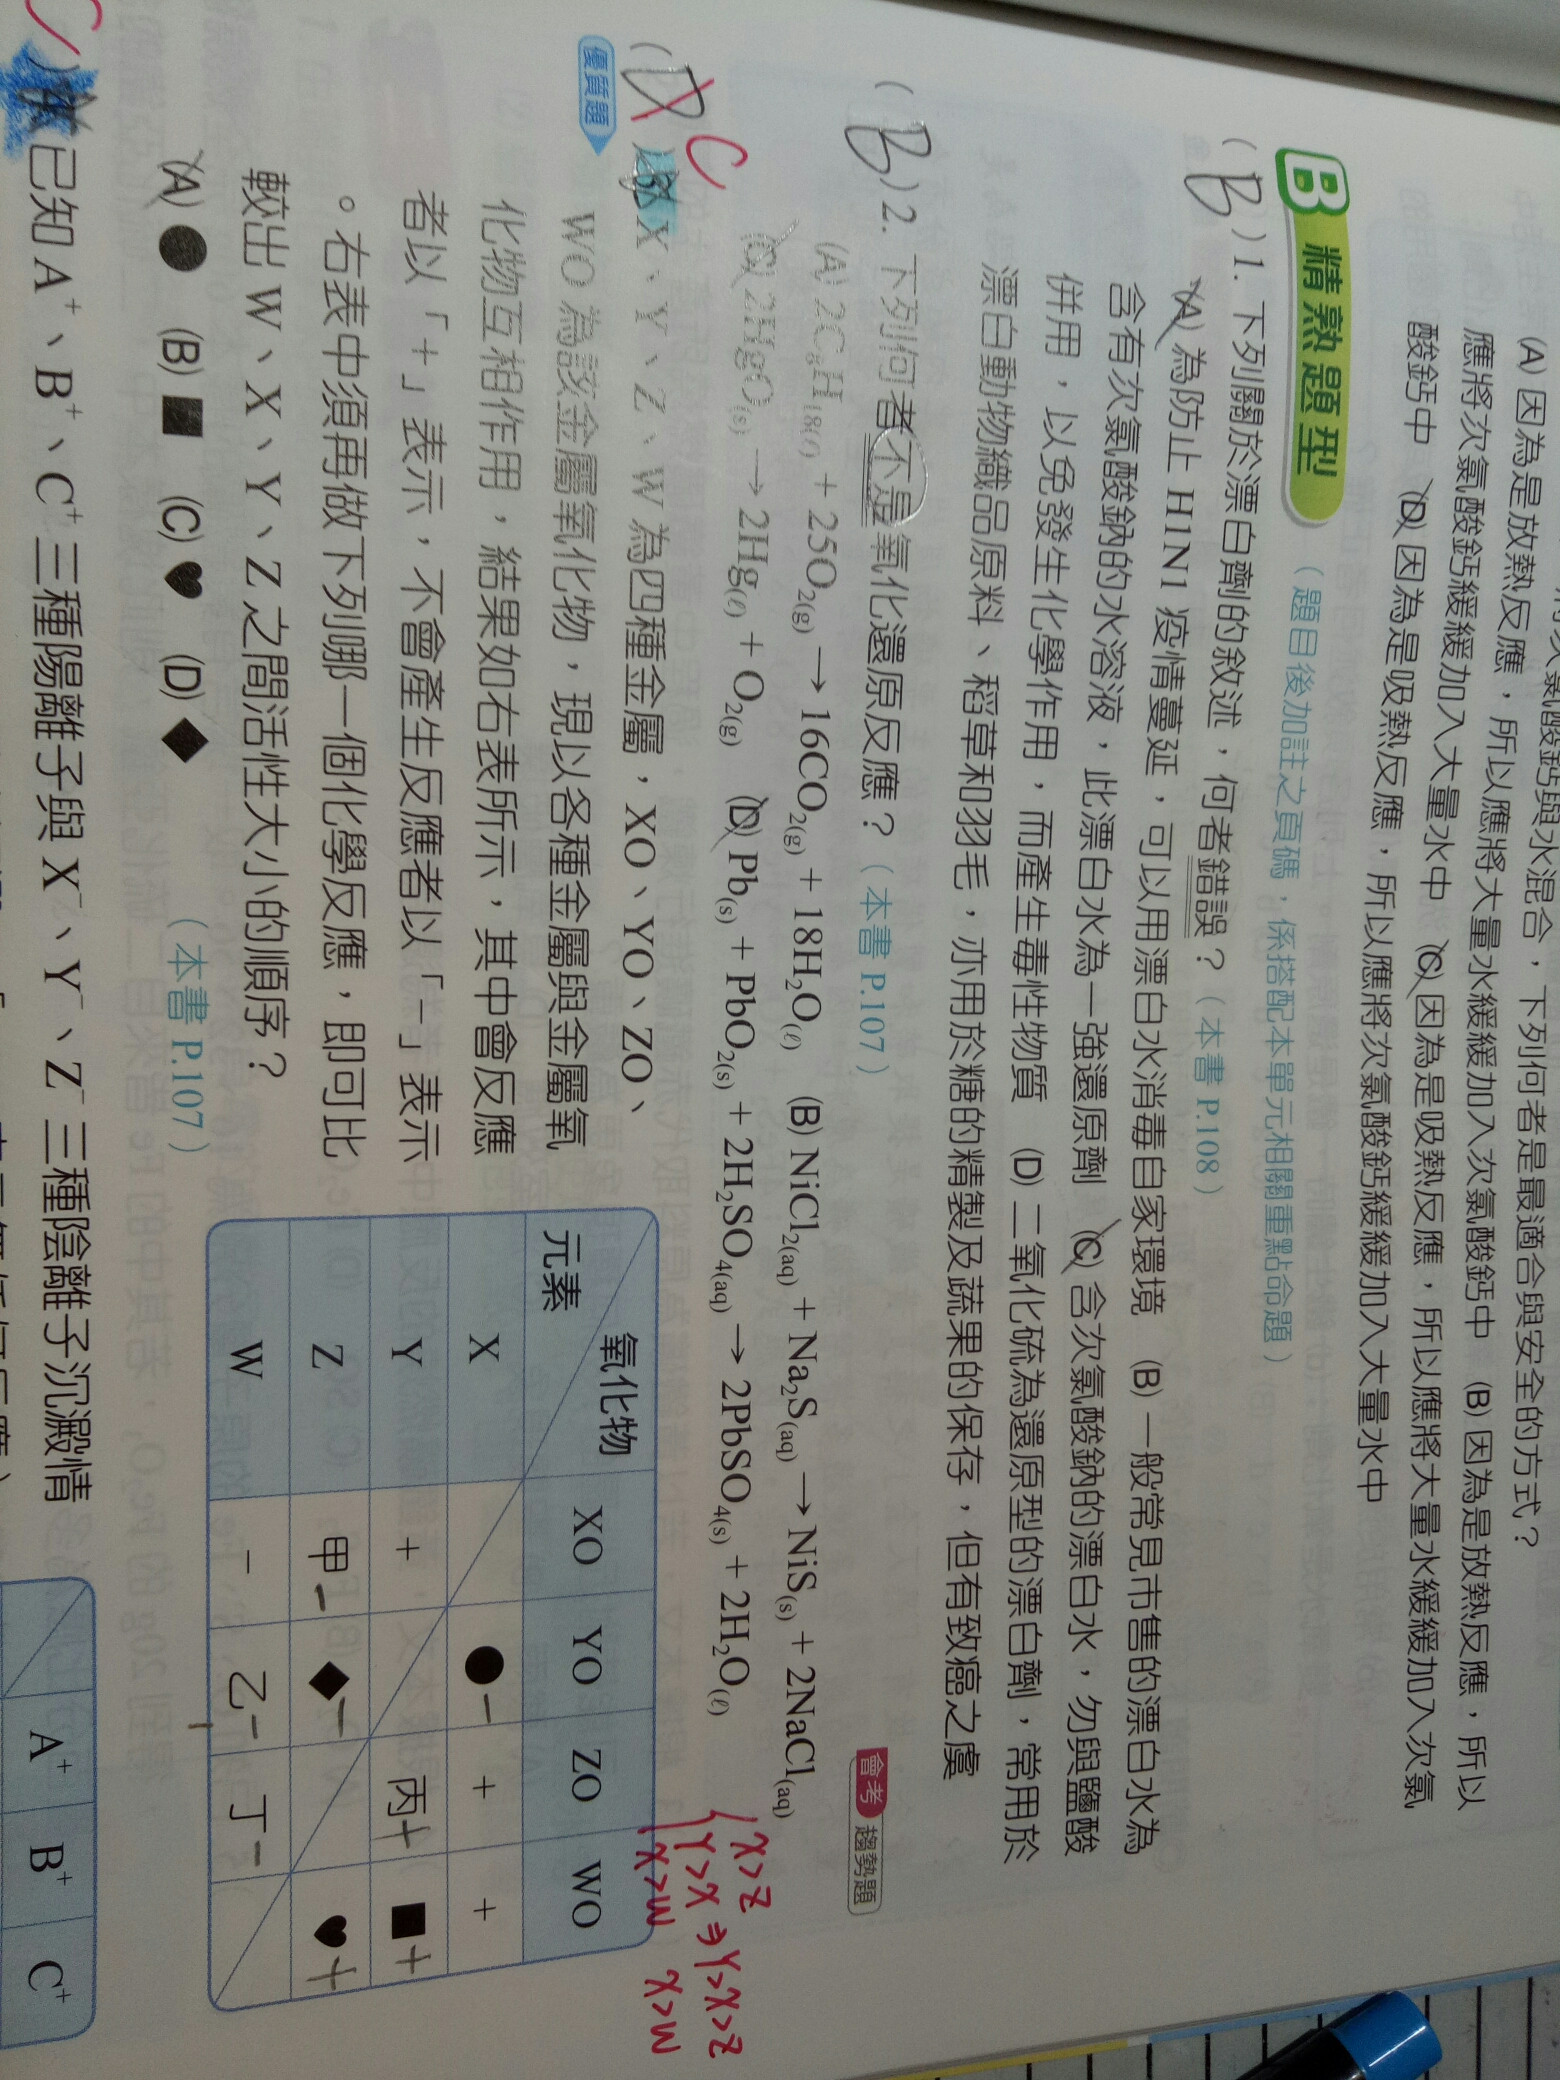 (A) 因為是放熱反應，所以應將大量水緩緩加入次氯酸鈣中 (B) 因為是放熱反應，所以
應將次氯酸鈣緩緩加入大量水中 (C) 因為是吸熱反應，所以應將大量水緩緩加入次氯
酸鈣中 (D) 因為是吸熱反應，所以應將次氯酸鈣緩緩加入大量水中
B 精熟題型 （題目後加註之頁碼，係搭配本單元相關重點命題）
( B ) 1. 下列關於漂白劑的敘述，何者錯誤？（本書 P.108）
(A) 為防止 H1N1 疫情蔓延，可以用漂白水消毒自家環境 (B) 一般常見市售的漂白水為
含有次氯酸鈉的水溶液，此漂白水為一強還原劑 (C) 含次氯酸鈉的漂白水，勿與鹽酸
併用，以免發生化學作用，而產生毒性物質 (D) 二氧化硫為還原型的漂白劑，常用於
漂白動物織品原料、稻草和羽毛，亦用於糖的精製及蔬果的保存，但有致癌之虞
( B ) 2. 下列何者不是氧化還原反應？（本書 P.107） 會考 趨勢題
(A) 2C₈H₁₈(ℓ) + 25O₂(g) → 16CO₂(g) + 18H₂O(ℓ) (B) NiCl₂(aq) + Na₂S(aq) → NiS(s) + 2NaCl(aq)
(C) 2HgO(s) → 2Hg(ℓ) + O₂(g) (D) Pb(s) + PbO₂(s) + 2H₂SO₄(aq) → 2PbSO₄(s) + 2H₂O(ℓ)
X>Z
Y>X ⇒ Y>X>Z
X>W X>W
C
( D ) 3. X、Y、Z、W 為四種金屬，XO、YO、ZO、
優質題 WO 為該金屬氧化物，現以各種金屬與金屬氧
化物互相作用，結果如右表所示，其中會反應
者以「+」表示，不會產生反應者以「−」表示
。右表中須再做下列哪一個化學反應，即可比
較出 W、X、Y、Z 之間活性大小的順序？
(A) ● (B) ■ (C) ♥ (D) ◆
（本書 P.107）
氧化物 XO YO ZO WO
元素
X ● − + +
Y + 丙 + ■ +
Z 甲 − ◆ − ♥ +
W − 乙 − 丁 −
C
已知 A⁺、B⁺、C⁺ 三種陽離子與 X⁻、Y⁻、Z⁻ 三種陰離子沉澱情
A⁺ B⁺ C⁺